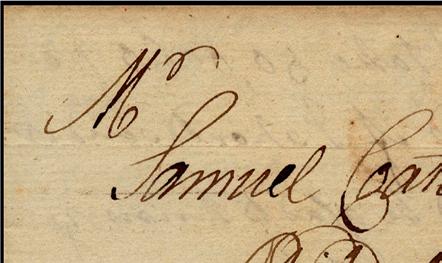 Mr
Samuel Coat